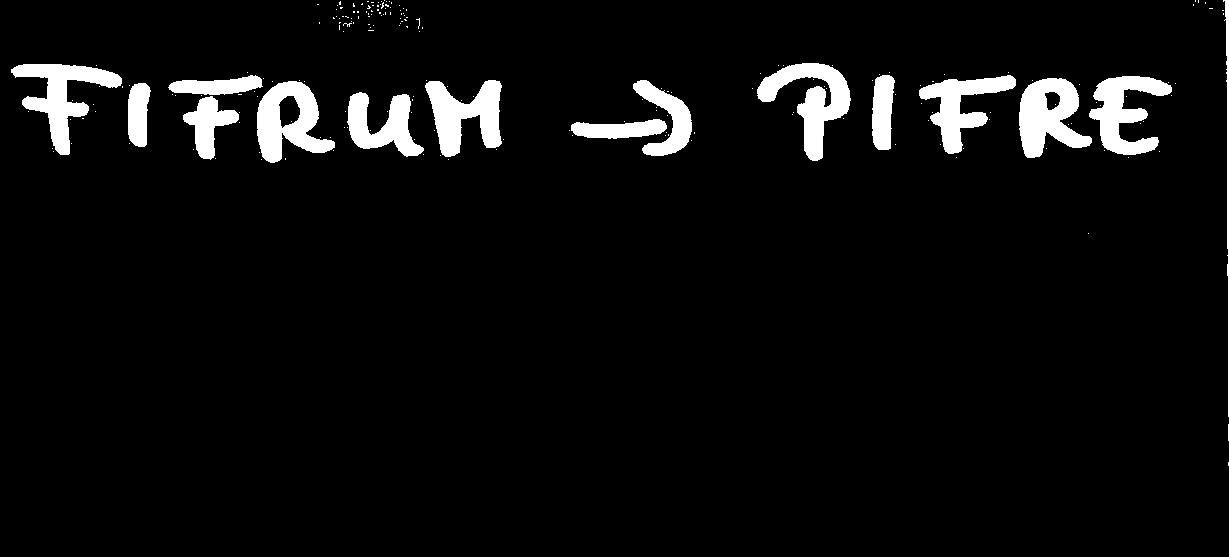 FIFRUM → PIFRE